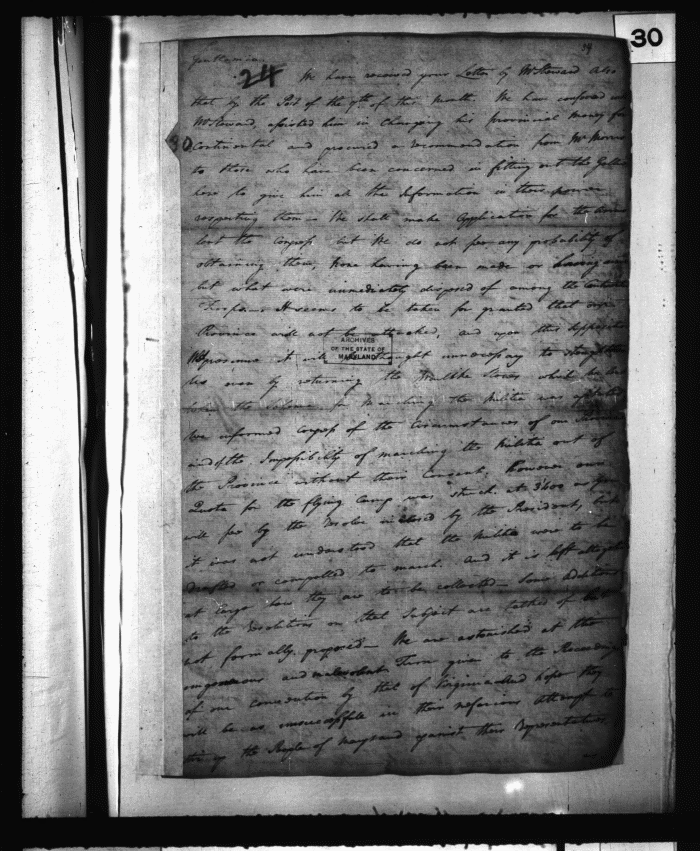 30
39
Gentlemen.
24 We have received your Letter by Mr Steward also
that by the Post of the 7th of this Month. We have conferred with
Mr Steward, assisted him in Changing his Provincial Money for
Continental and procured a recommendation from Mr Morris
to those who have been concerned in fitting out the Gallies
here to give him all the Information in their power
respecting them. We shall make application for the
but the congress but We do not see any probability of
obtaining them, None having been made or
but what were immediately disposed of among the Continental
Troops. It seems to be taken for granted that our
Province will not be attacked, and upon this
it will thought unnecessary to
by returning the Warlike Stores which
for Marching the Militia was
We informed congress of the Circumstances of our
and of the Impossibility of marching the Militia out of
the Province without their Consent, however our
Quota for the flying Camp was struck at 3400 as you
will see by the Resolve inclosed by the President, but
it was not understood that the Militia were to be
drafted or compelled to march. And it is left
at large how they are to be collected. Some additions
to the Resolutions on that Subject are talked of but
not formally proposed. We are astonished at the
ungenerous and Turn given to the Proceedings
of our convention by that of Virginia and hope they
will be as unsuccessful in their nefarious attempt to
the People of Maryland against their Representatives
ARCHIVES
OF THE STATE OF
MARYLAND